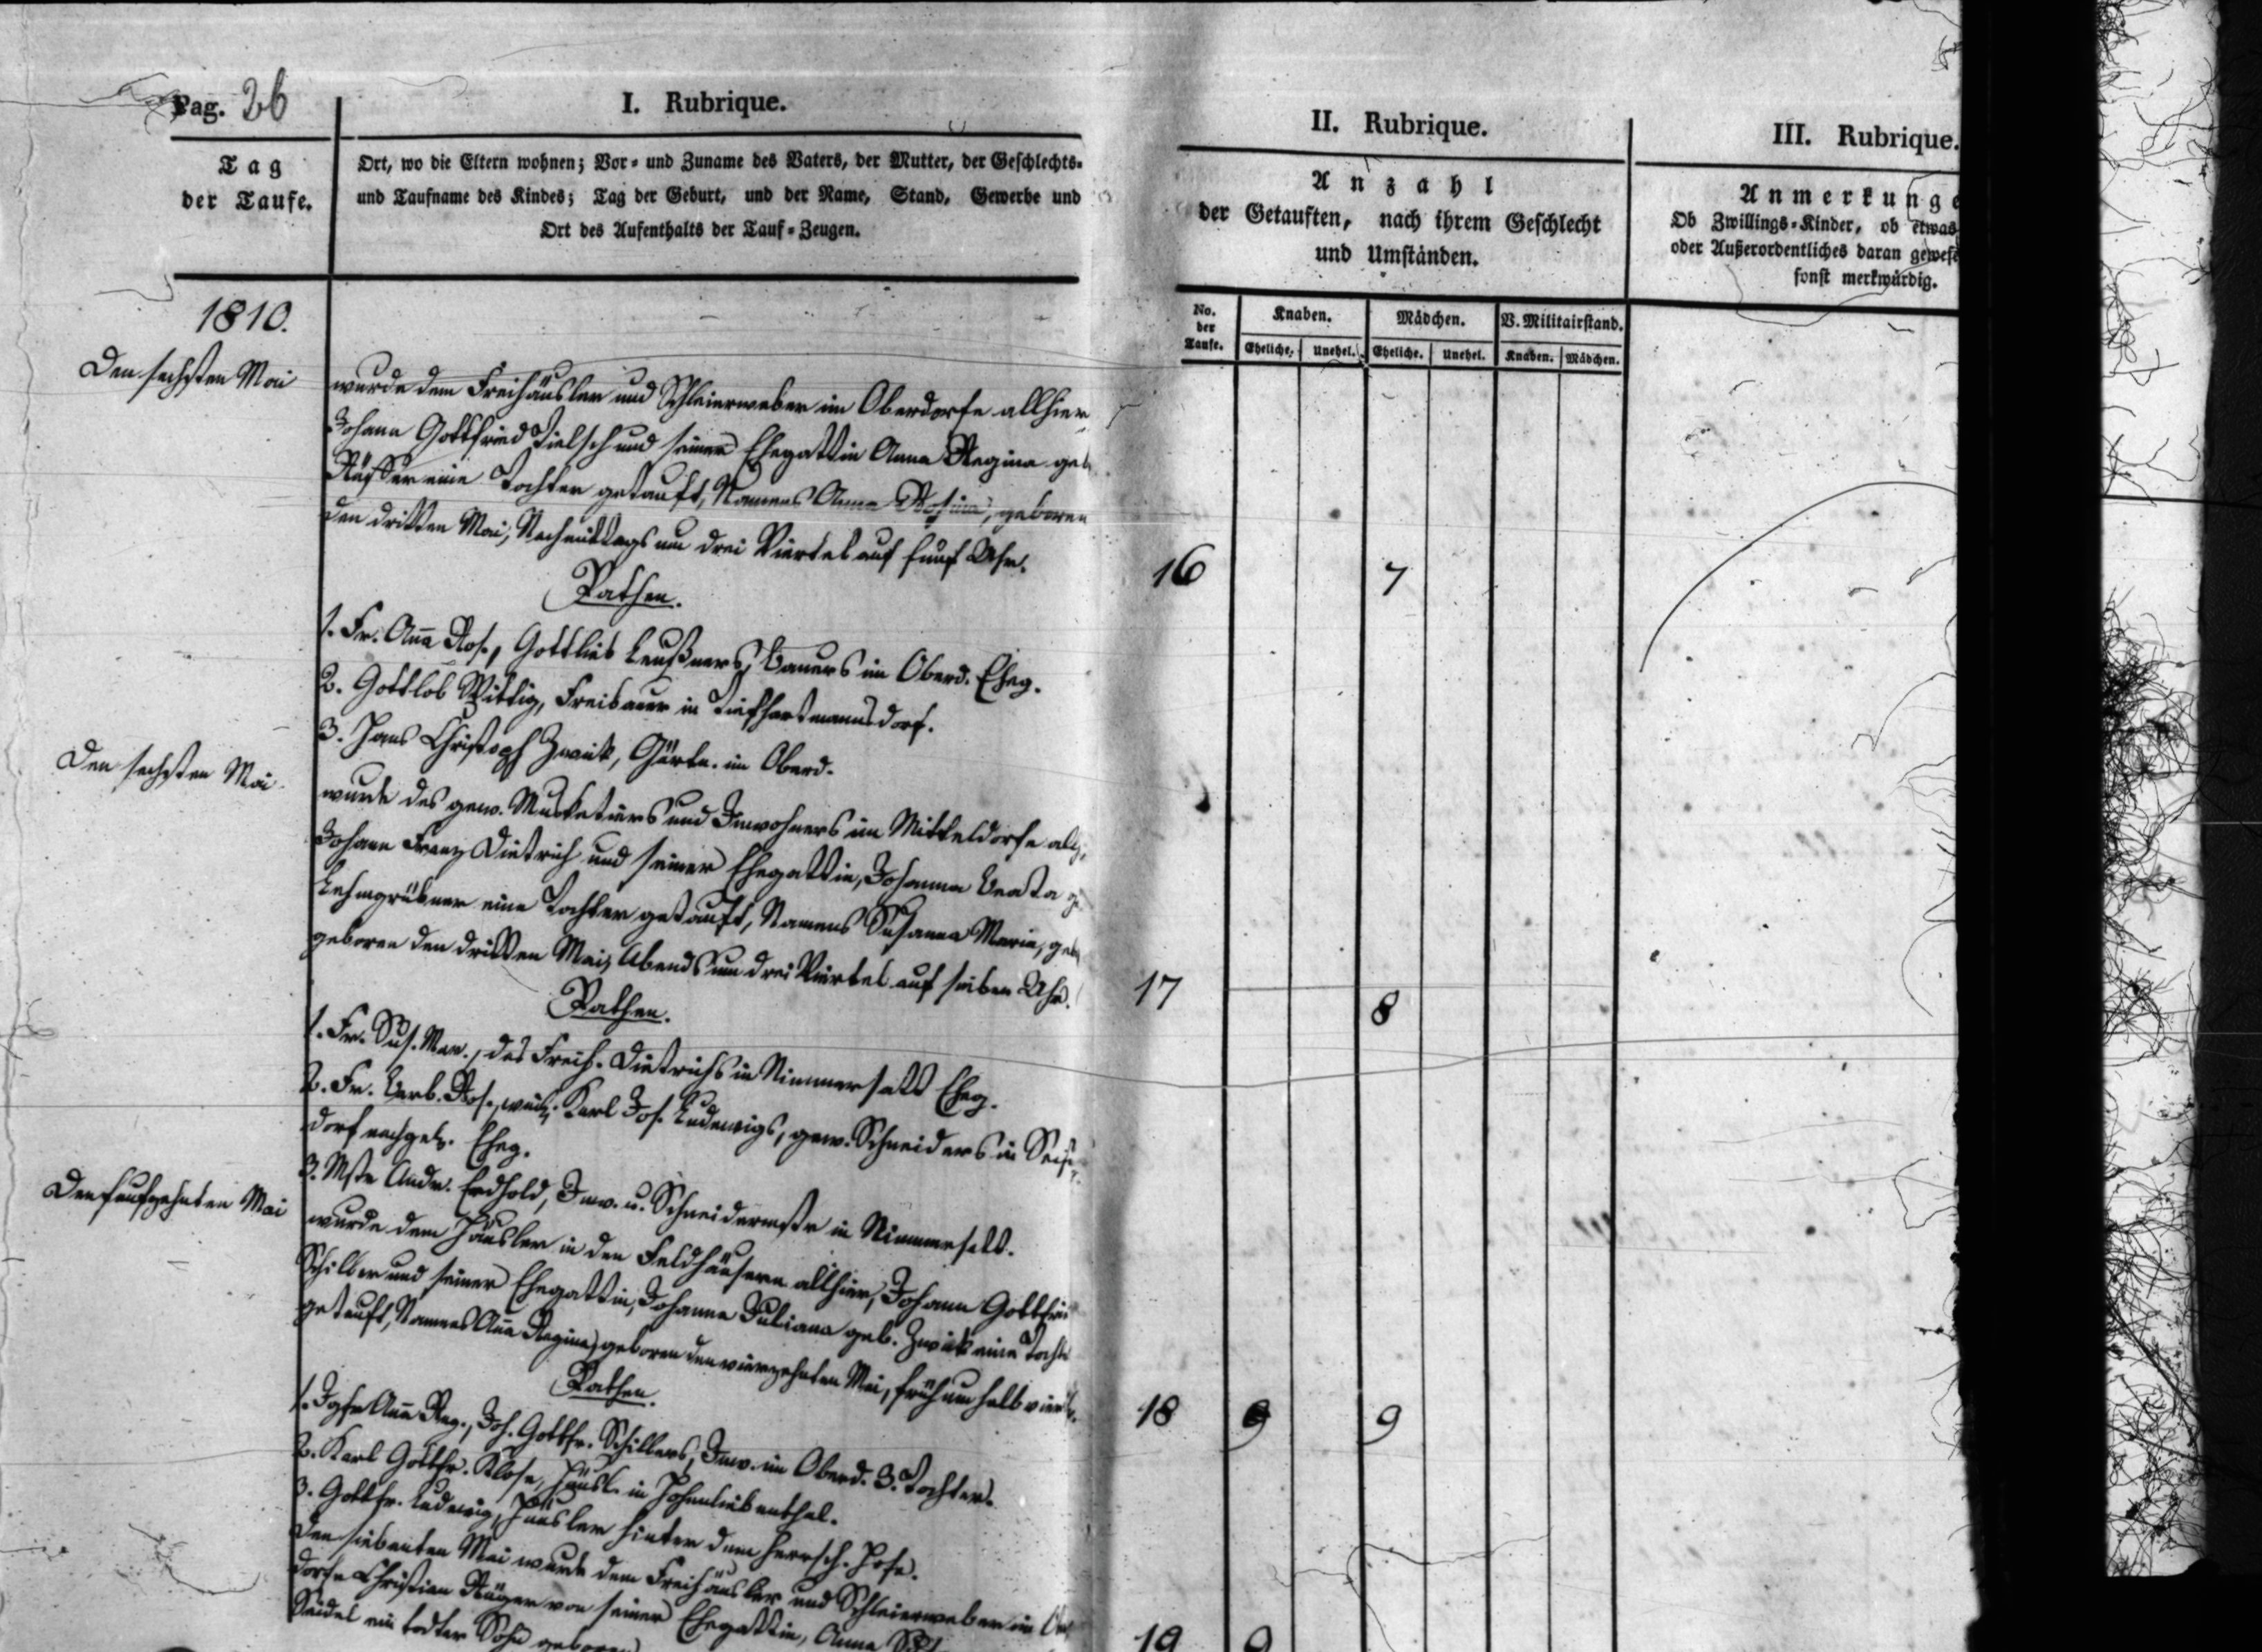 Pag. 26
I. Rubrique.
II. Rubrique.
III. Rubrique.
Tag
der Taufe.
Ort, wo die Eltern wohnen; Vor- und Zuname des Vaters, der Mutter, der Geschlechts-
und Taufname des Kindes; Tag der Geburt, und der Name, Stand, Gewerbe und
Ort des Aufenthalts der Tauf-Zeugen.
Anzahl
der Getauften, nach ihrem Geschlecht
und Umständen.
Anmerkunge
Ob Zwillings-Kinder, ob etwas
oder Außerordentliches daran gewese
sonst merkwürdig.
No.
der
Taufe.
Knaben.
Mädchen.
V. Militairstand.
Eheliche.
Unehel.
Eheliche.
Unehel.
Knaben.
Mädchen.
1810.
Den sechsten Mai
wurde dem Freihäusler und Schleierweber im Oberdorfe allhier
Johann Gottfried Tielsch und seiner Ehegattin Anna Regina geb
eine Tochter getauft, Namens Anna Rosina, geboren
den dritten Mai, Nachmittags um drei Viertel auf fünf Uhr.
16
7
Pathen.
1. Fr. Anna Ros., Gottlieb Leußners, Bauers im Oberd. Eheg.
2. Gottlob Wittig, Freibauer in Tiefhartmannsdorf.
3. Hans Christoph Zwick, Gärtn. im Oberd.
Den sechsten Mai.
wurde des gew. Musketiers und Inwohners im Mitteldorfe allh.
Johann Franz Dietrich und seiner Ehegattin, Johanna Beata g
Lehmgrübner eine Tochter getauft, Namens Susanna Maria, geb
geboren den dritten Mai, Abends um drei Viertel auf sieben Uhr.
17
8
Pathen.
1. Fr. Sus. Mar., des Freih. Dietrichs in Nimmersatt Eheg.
2. Fr. Barb. Ros., weil. Karl Jos. Ludewigs, gew. Schneiders in
dorf nachgel. Eheg.
3. Mstr Andr. Erdhold, Inw. u. Schneidermstr in Nimmersatt.
Den funfzehnten Mai
wurde dem Häusler in den Feldhäusern allhier, Johann Gottfrie
Schiller und seiner Ehegattin, Johanna Juliana geb. Zwick eine Tocht
getauft, Namens Anna Regina, geboren den vierzehnten Mai, früh um halb vier
18
9
9
Pathen.
1. Jgfr Anna Reg., Joh. Gottfr. Schillers, Inw. im Oberd. 3. Tochter.
2. Karl Gottfr. Klose, Häusl. in Hohenliebenthal.
3. Gottfr. Ludewig, Häusler hinter dem herrsch. Hofe.
Den siebenten Mai wurde dem Freihäusler und Schleierweber im
dorfe Christian Räger von seiner Ehegattin, Anna
Seidel ein todter Sohn geboren
19
9